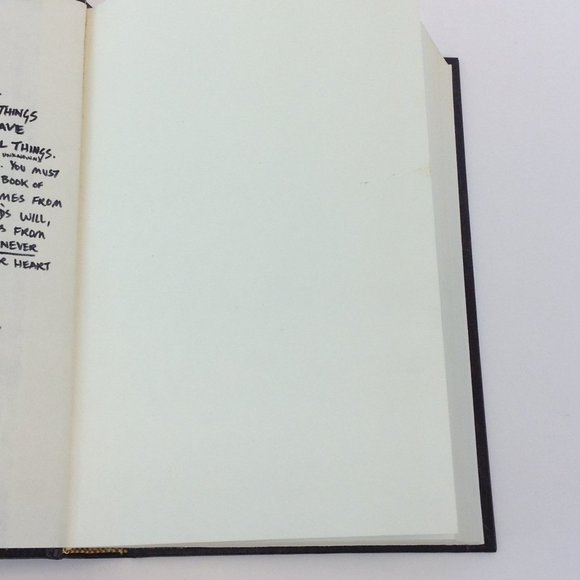 THINGS
AVE
THINGS.
UNKNOWN
. YOU MUST
BOOK OF
MES FROM
WILL,
FROM
NEVER
R HEART